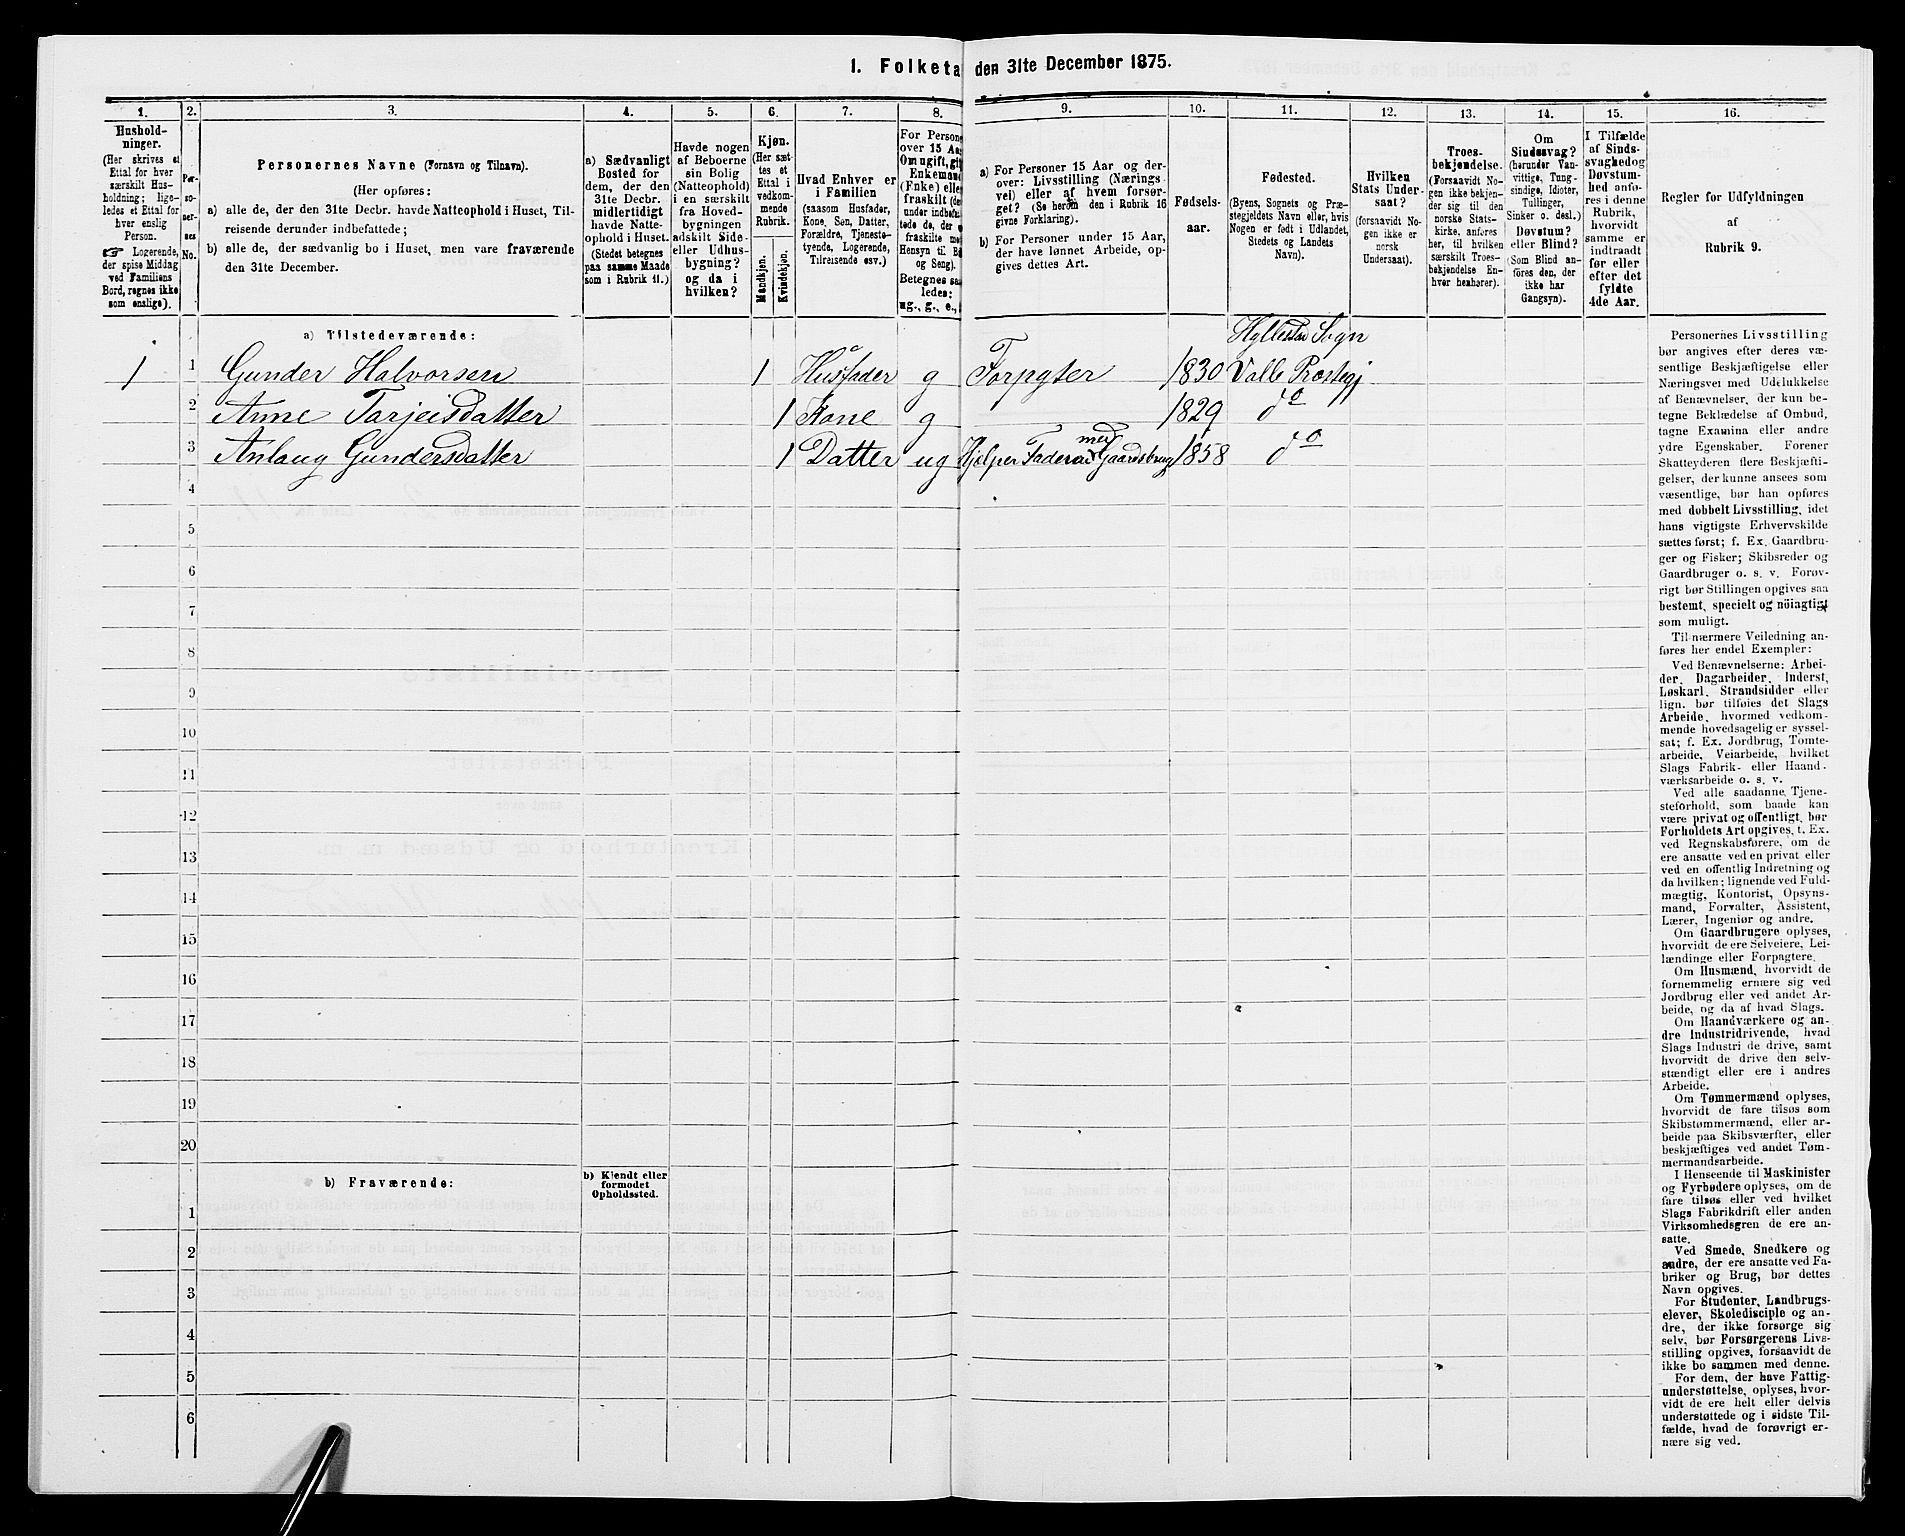 1. Folketa den 31te December 1875.
1. 2. 3. 4. 5. 6. 7. 8. 9. 10. 11. 12. 13. 14. 15. 16.
Hushold-
ninger.
(Her skrives et
Ettal for hver
særskilt Hus-
holdning; lige-
ledes et Ettal for
hver enslig
Person.
☞ Logerende,
der spise Middag
ved Familiens
Bord, regnes ikke
som enslige).
Per-
so-
ner-
nes
No.
Personernes Navne (Fornavn og Tilnavn).
(Her opføres:
a) alle de, der den 31te Decbr. havde Natteophold i Huset, Til-
reisende derunder indbefattede;
b) alle de, der sædvanlig bo i Huset, men vare fraværende
den 31te December.
a) Sædvanligt
Bosted for
dem, der den
31te Decbr.
midlertidigt
havde Natte-
ophold i Huset.
(Stedet betegnes
paa samme Maade
som i Rubrik 11.)
Havde nogen
af Beboerne
sin Bolig
(Natteophold)
i en særskilt
fra Hoved-
bygningen
adskilt Side-
eller Udhus-
bygning?
og da i
hvilken?
Kjøn.
(Her sæt-
tes et
Ettal i
vedkom-
mende
Rubrik.
Mandkjøn.
Kvindekjøn.
Hvad Enhver er
i Familien
(saasom Husfader,
Kone, Søn, Datter,
Forældre, Tjeneste-
tyende, Logerende,
Tilreisende osv.)
For Persone
over 15 Aa
Om ugift, gif
Enkemand
(Enke) elle
fraskilt (de
under indbefa
tede de, der e
fraskilte me
Hensyn til B
og Seng).
Betegnes saa
ledes:
ug., g., e.,
a) For Personer 15 Aar og der-
over: Livsstilling (Nærings-
vei) eller af hvem forsør-
get? (Se herom den i Rubrik 16
givne Forklaring).
b) For Personer under 15 Aar,
der have lønnet Arbeide, op-
gives dettes Art.
Fødsels-
aar.
Fødested.
(Byens, Sognets og Præ-
stegjeldets Navn eller, hvis
Nogen er født i Udlandet,
Stedets og Landets
Navn).
Hvilken
Stats Under-
saat?
(forsaavidt No-
gen ikke er
norsk
Undersaat).
Troes-
bekjendelse.
(Forsaavidt No-
gen ikke bekjen-
der sig til den
norske Stats-
kirke, anføres
her, til hvilken
særskilt Troes-
bekjendelse En-
hver henhører).
Om
Sindssvag?
(herunder Van-
vittige, Tung-
sindige, Idioter,
Sinker o. desl.)
Døvstum?
eller Blind?
(Som Blind an-
føres den, der
ikke har
Gangsyn).
I Tilfælde
af Sinds-
svaghed og
Døvstum-
hed anfø-
res i denne
Rubrik,
hvorvidt
samme er
indtraadt
før eller
efter det
fyldte
4de Aar.
Regler for Udfyldningen
af
Rubrik 9.
a) Tilstedeværende:
Hyllestad Sogn
1 1 Gunder Halvorsen 1 Husfader g Forpagter 1830 Valle Præstegj
2 Anne Tarjeisdatter 1 Kone g 1829 do
3 Anlaug Gundersdatter 1 Datter ug Hjælper Faderen med Gaardsbrug 1858 do
4
5
6
7
8
9
10
11
12
13
14
15
16
17
18
19
20
b) Fraværende:
b) Kjendt eller
formodet
Opholdssted.
1
2
3
4
5
6
Personernes Livsstilling
bør angives efter deres væ-
sentlige Beskjæftigelse eller
Næringsvei med Udelukkelse
af Benævnelser, der kun be-
tegne Beklædelse af Ombud,
tagne Examina eller andre
ydre Egenskaber. Forener
Skatteyderen flere Beskjæfti-
gelser, der kunne ansees som
væsentlige, bør han opføres
med dobbelt Livsstilling, idet
hans vigtigste Erhvervskilde
sættes først; f. Ex. Gaardbru-
ger og Fisker; Skibsreder og
Gaardbruger o. s. v. Forøv-
rigt bør Stillingen opgives saa
bestemt, specielt og nöiagtigt
som muligt.
Til nærmere Veiledning an-
føres her endel Exempler:
Ved Benævnelserne: Arbei-
der, Dagarbeider, Inderst,
Løskarl, Strandsidder eller
lign. bør tilføies det Slags
Arbeide, hvormed vedkom-
mende hovedsagelig er syssel-
sat; f. Ex. Jordbrug, Tomte-
arbeide, Veiarbeide, hvilket
Slags Fabrik- eller Haand-
værksarbeide o. s. v.
Ved alle saadanne Tjene-
steforhold, som baade kan
være privat og offentligt, bør
Forholdets Art opgives, t. Ex.
ved Regnskabsførere, om de
ere ansatte ved en privat eller
ved en offentlig Indretning og
da hvilken; lignende ved Fuld-
mægtig, Kontorist, Opsyns-
mand, Forvalter, Assistent,
Lærer, Ingeniør og andre.
Om Gaardbrugere oplyses,
hvorvidt de ere Selveiere, Lei-
lændinge eller Forpagtere.
Om Husmænd, hvorvidt de
fornemmelig ernære sig ved
Jordbrug eller ved andet Ar-
beide, og da af hvad Slags.
Om Haandværkere og an-
dre Industridrivende, hvad
Slags Industri de drive, samt
hvorvidt de drive den selv-
stændigt eller ere i andres
Arbeide.
Om Tømmermænd oplyses,
hvorvidt de fare tilsøs som
Skibstømmermænd, eller ar-
beide paa Skibsværfter, eller
beskjæftiges ved andet Tøm-
mermandsarbeide.
I Henseende til Maskinister
og Fyrbødere oplyses, om de
fare tilsøs eller ved hvilket
Slags Fabrikdrift eller anden
Virksomhedsgren de ere an-
satte.
Ved Smede, Snedkere og
andre, der ere ansatte ved Fa-
briker og Brug, bør dettes
Navn opgives.
For Studenter, Landbrugs-
elever, Skoledisciple og an-
dre, der ikke forsørge sig
selv, bør Forsørgerens Livs-
stilling opgives, forsaavidt de
ikke bo sammen med denne.
For dem, der have Fattig-
understøttelse, oplyses, hvor-
vidt de ere helt eller delvis
understøttede og i sidste Til-
fælde, hvad de forøvrigt er-
nære sig ved.